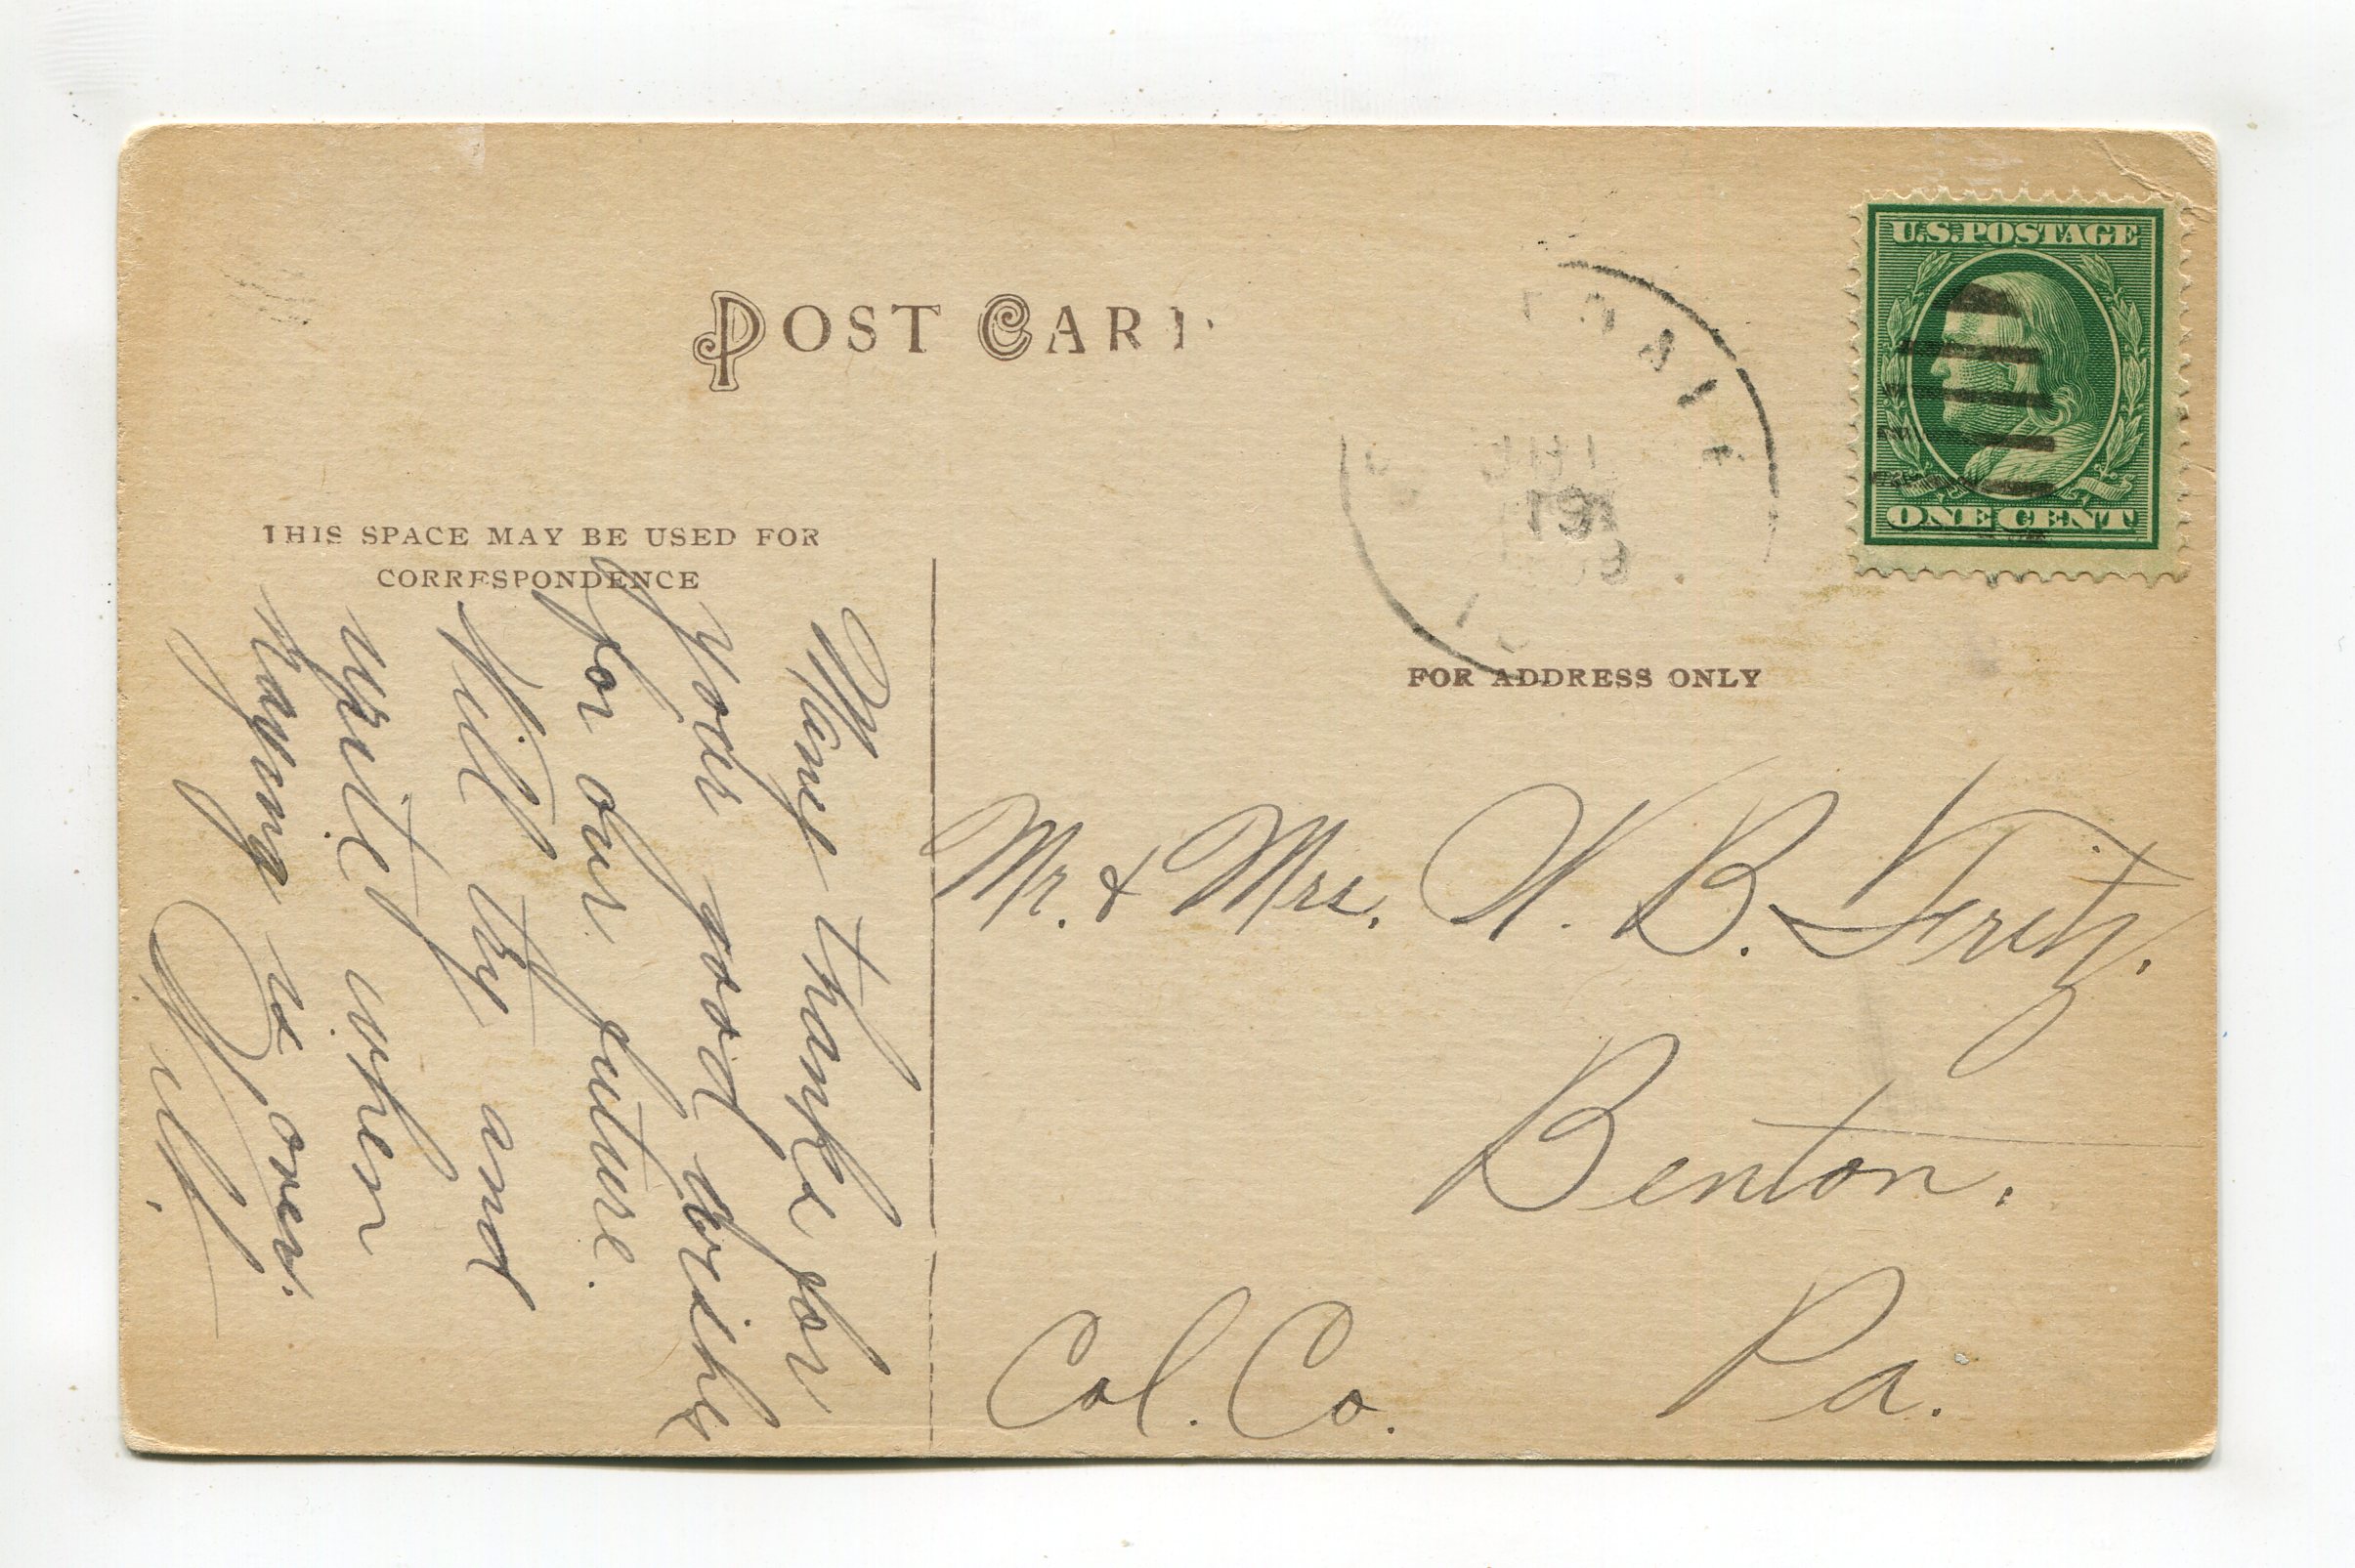 POST CARD
THIS SPACE MAY BE USED FOR
CORRESPONDENCE
FOR ADDRESS ONLY
U.S.POSTAGE
ONE CENT
19
Many thanks for
your good wishes
for our future.
Will try and
write when
haying is over.
Will.
Mr. & Mrs. B. Fritz.
Benton,
Pa.
Col. Co.